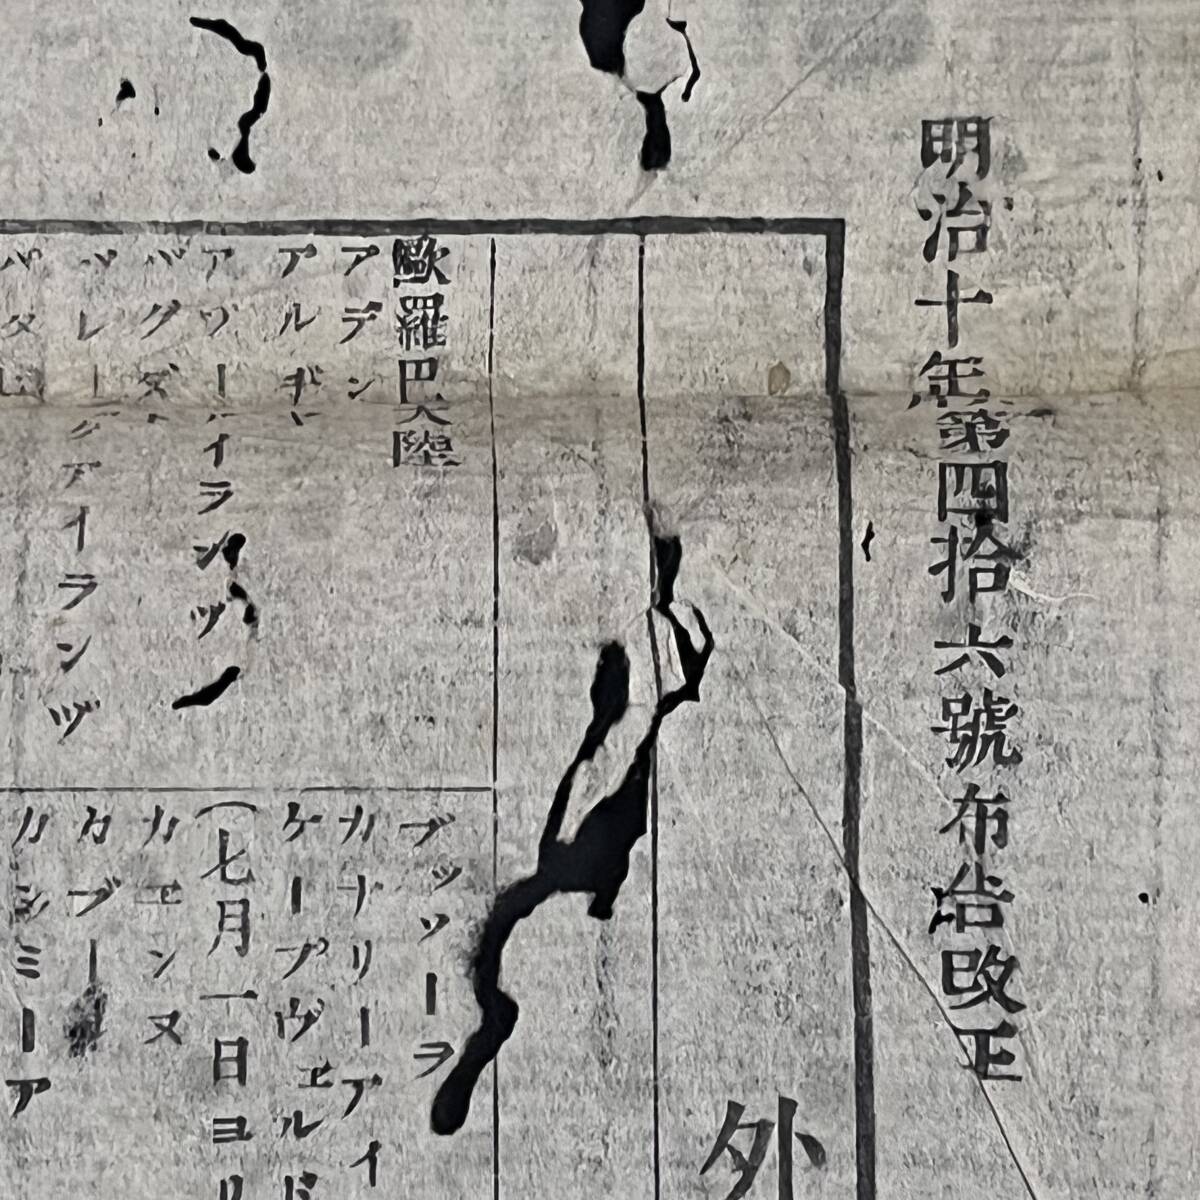 明治十年第四拾六號布告改正
外
歐羅巴大陸
アデン
アルギ
アゾー
アイランヅ
バグダ
バレー
アイランヅ
バタ
ブッソーヲ
カナリーアイ
ケープヴェルド
(七月一日ヨリ
カヱンヌ
カブー
カシミーア